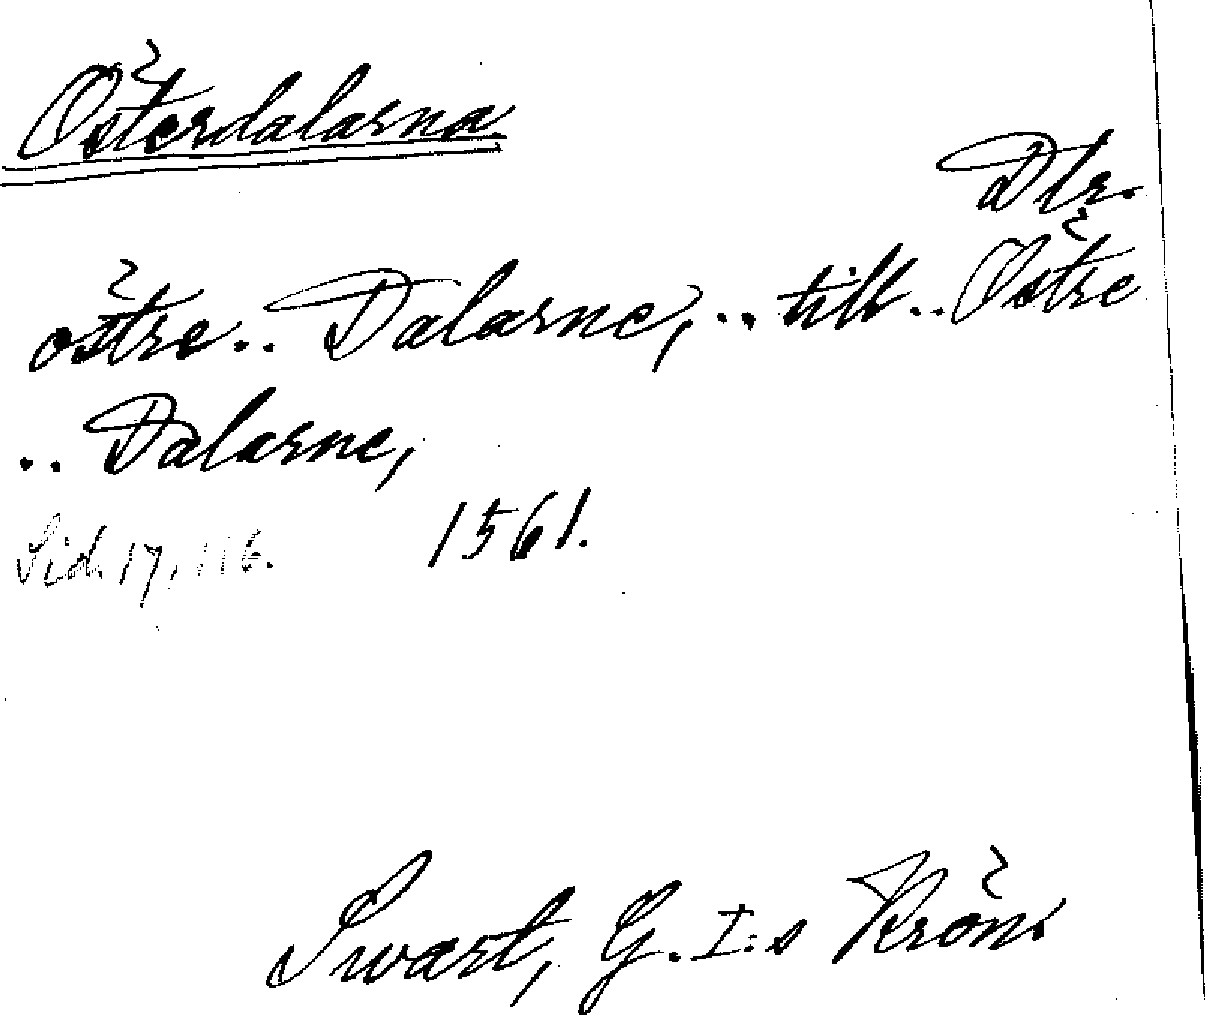 Österdalarna
Dlr.
östre.. Dalarne, .. till .. Östre
.. Dalarne,
Sid. 17, 116.
1561.
Swart, G. I:s Krön.